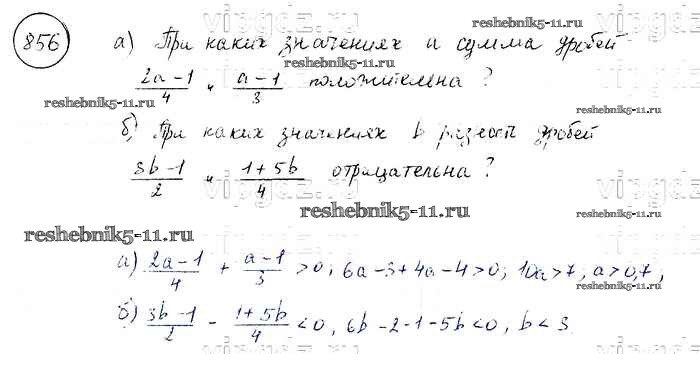 856 а) При каких значениях а сумма дробей
reshebnik5-11.ru
(2a-1)/4 и (a-1)/3 положительна?
reshebnik5-11.ru
б) При каких значениях b разность дробей
(3b-1)/2 и (1+5b)/4 отрицательна?
vipgdz.ru
reshebnik5-11.ru
reshebnik5-11.ru
а) (2a-1)/4 + (a-1)/3 >0; 6a-3+4a-4>0; 10a>7, a>0,7,
б) (3b-1)/2 - (1+5b)/4 <0, 6b-2-1-5b<0, b<3